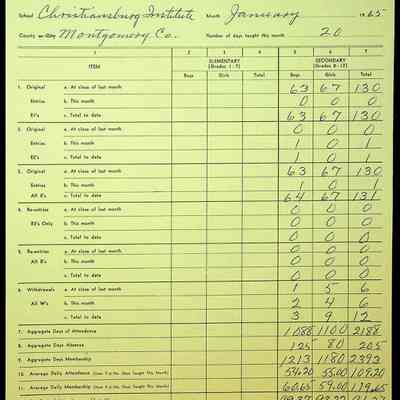 School Christiansburg Institute Month January 1965
County or City Montgomery Co. Number of days taught this month 20
1 2 3 4 5 6 7
ITEM ELEMENTARY (Grades 1 - 7) SECONDARY (Grades 8 - 12)
Boys Girls Total Boys Girls Total
1. Original a. At close of last month 63 67 130
Entries b. This month 0 0 0
E1's c. Total to date 63 67 130
2. Original a. At close of last month 0 0 0
Entries b. This month 1 0 1
E2's c. Total to date 1 0 1
3. Original a. At close of last month 63 67 130
Entries b. This month 1 0 1
All E's c. Total to date 64 67 131
4. Re-entries a. At close of last month 0 0 0
RE's Only b. This month 0 0 0
c. Total to date 0 0 0
5. Re-entries a. At close of last month 0 0 0
All R's b. This month 0 0 0
c. Total to date 0 0 0
6. Withdrawals a. At close of last month 1 5 6
All W's b. This month 2 4 6
c. Total to date 3 9 12
7. Aggregate Days of Attendance 1088 1100 2188
8. Aggregate Days Absence 125 80 205
9. Aggregate Days Membership 1213 1180 2393
10. Average Daily Attendance (Item 7 ÷ No. Days Taught This Month) 54.20 55.00 109.20
11. Average Daily Membership (Item 9 ÷ No. Days Taught This Month) 60.65 59.00 119.65